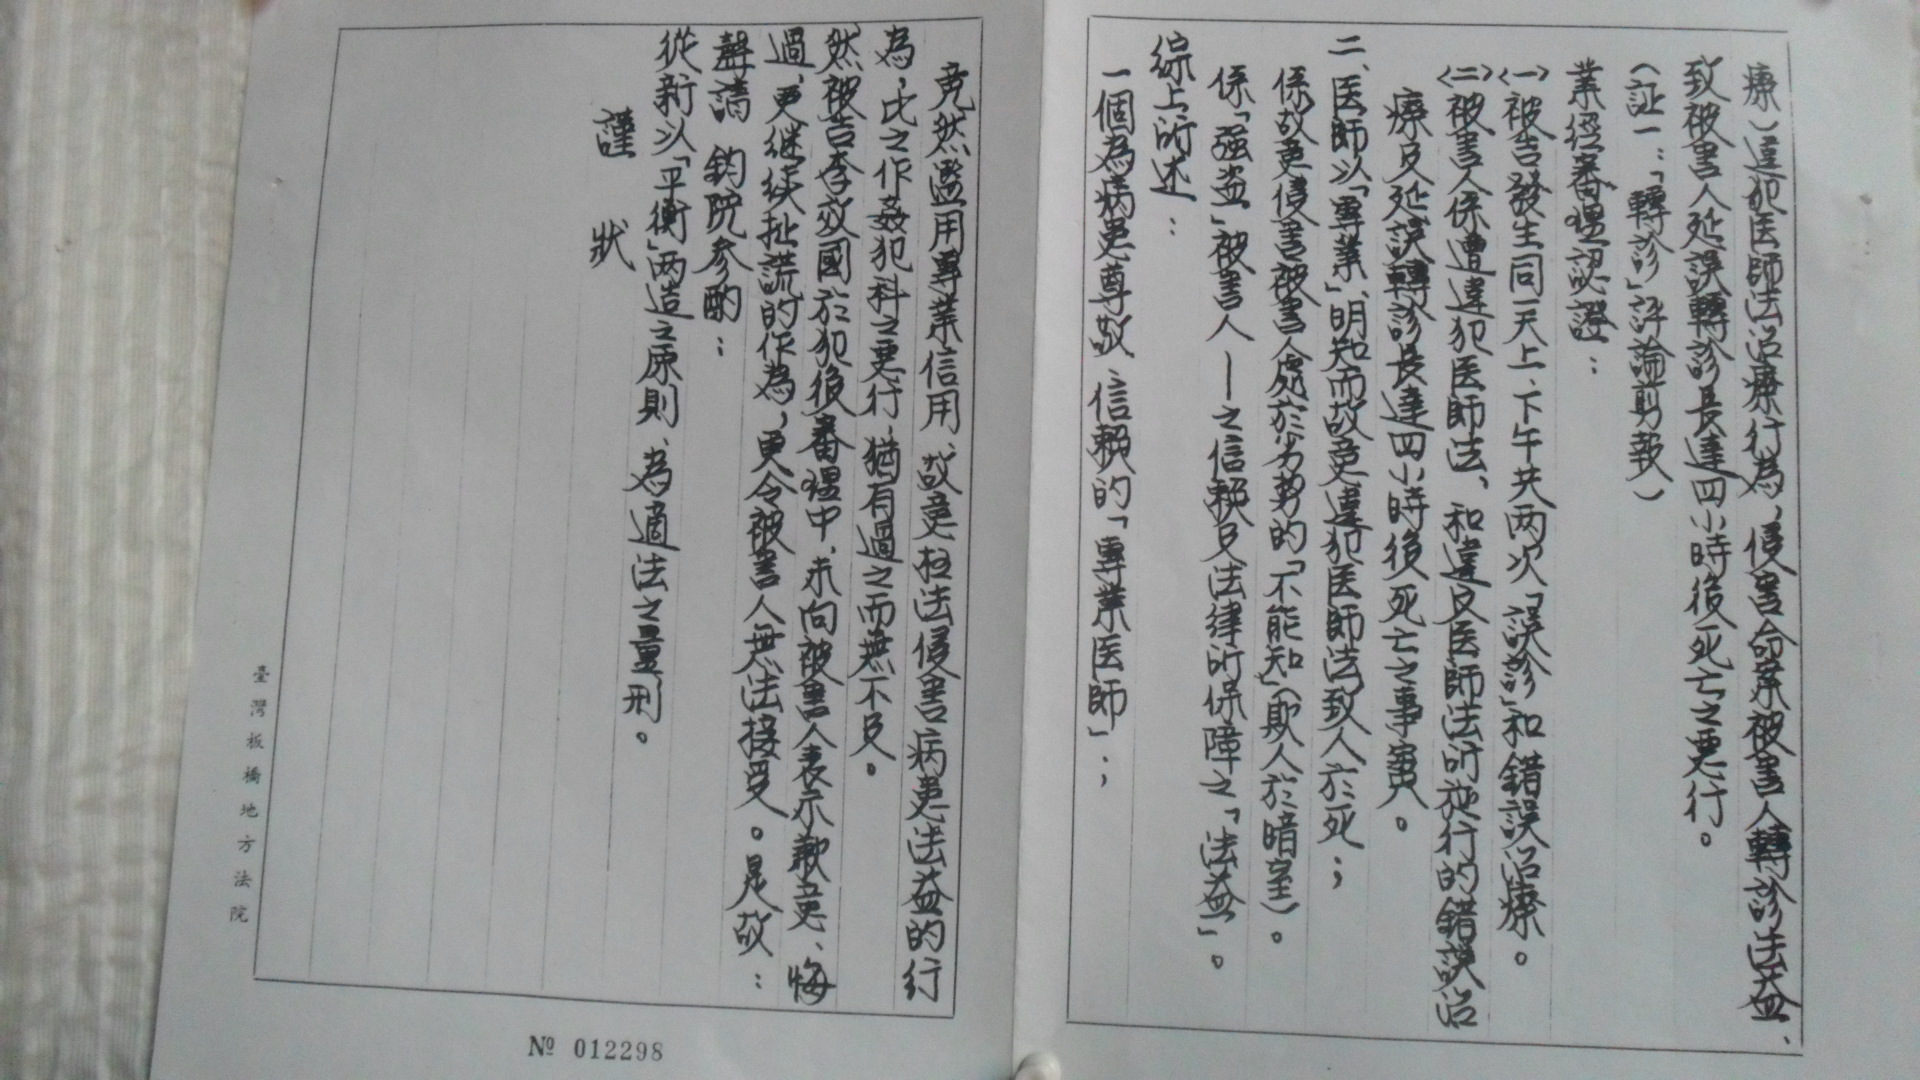 療)違犯医師法治療行為,侵害命案被害人轉診法益、
致被害人延誤轉診長達四小時後死亡之惡行。
(証一:「轉診」評論剪報)
業經審理認證:
(一)被告發生同一天上、下午共两次「誤診」和錯誤治療。
(二)被害人係遭違犯医師法、和違反医師法所施行的錯誤治
療反延誤轉診長達四小時後死亡之事實。
二、医師以「專業」、明知而故意違犯医師法致人於死;
係故意侵害被害人處於劣势的「不能知」(欺人於暗室)。
係「強盗」被害人—之信賴及法律所保障之「法益」。
綜上所述:
一個為病患尊敬、信賴的「專業医師」;
竟然濫用專業信用、故意枉法侵害病患法益的行
為,比之作姦犯科之惡行,猶有過之而無不及。
然被告李效國於犯後審理中,未向被害人表示歉意、悔
過,更继续扯謊的作為,更令被害人無法接受。是故:
聲請 鈞院參酌:
從新以「平衡」两造之原則、為適法之量刑。
謹 狀
臺灣板橋地方法院
№ 012298